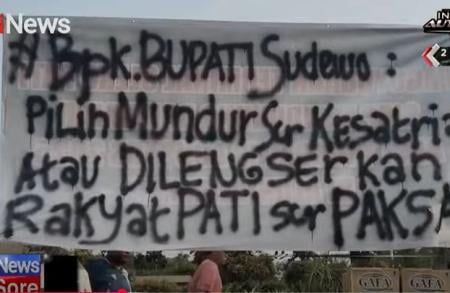 iNews
IN
AUT
2
# Bpk. BUPATI Sudewo :
PiLih MUNDUR Scr KESATRIA
ATAU DILENGSERKAN
RAKYAT PATI scr PAKSA
News
Sore
GAFA
GAFA